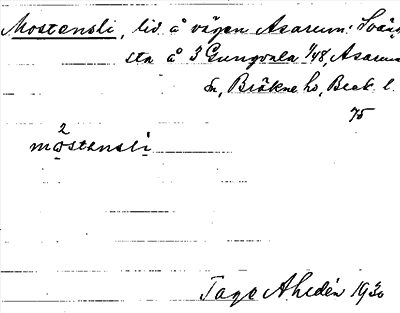 Mostensli, lid å vägen Asarum: Svängsta
sta å 3 Gungvala 1/48, Asarum
Sn, Bräkne hd, Blek. l.
75
2
mostensli
Tage Ahldén 1930